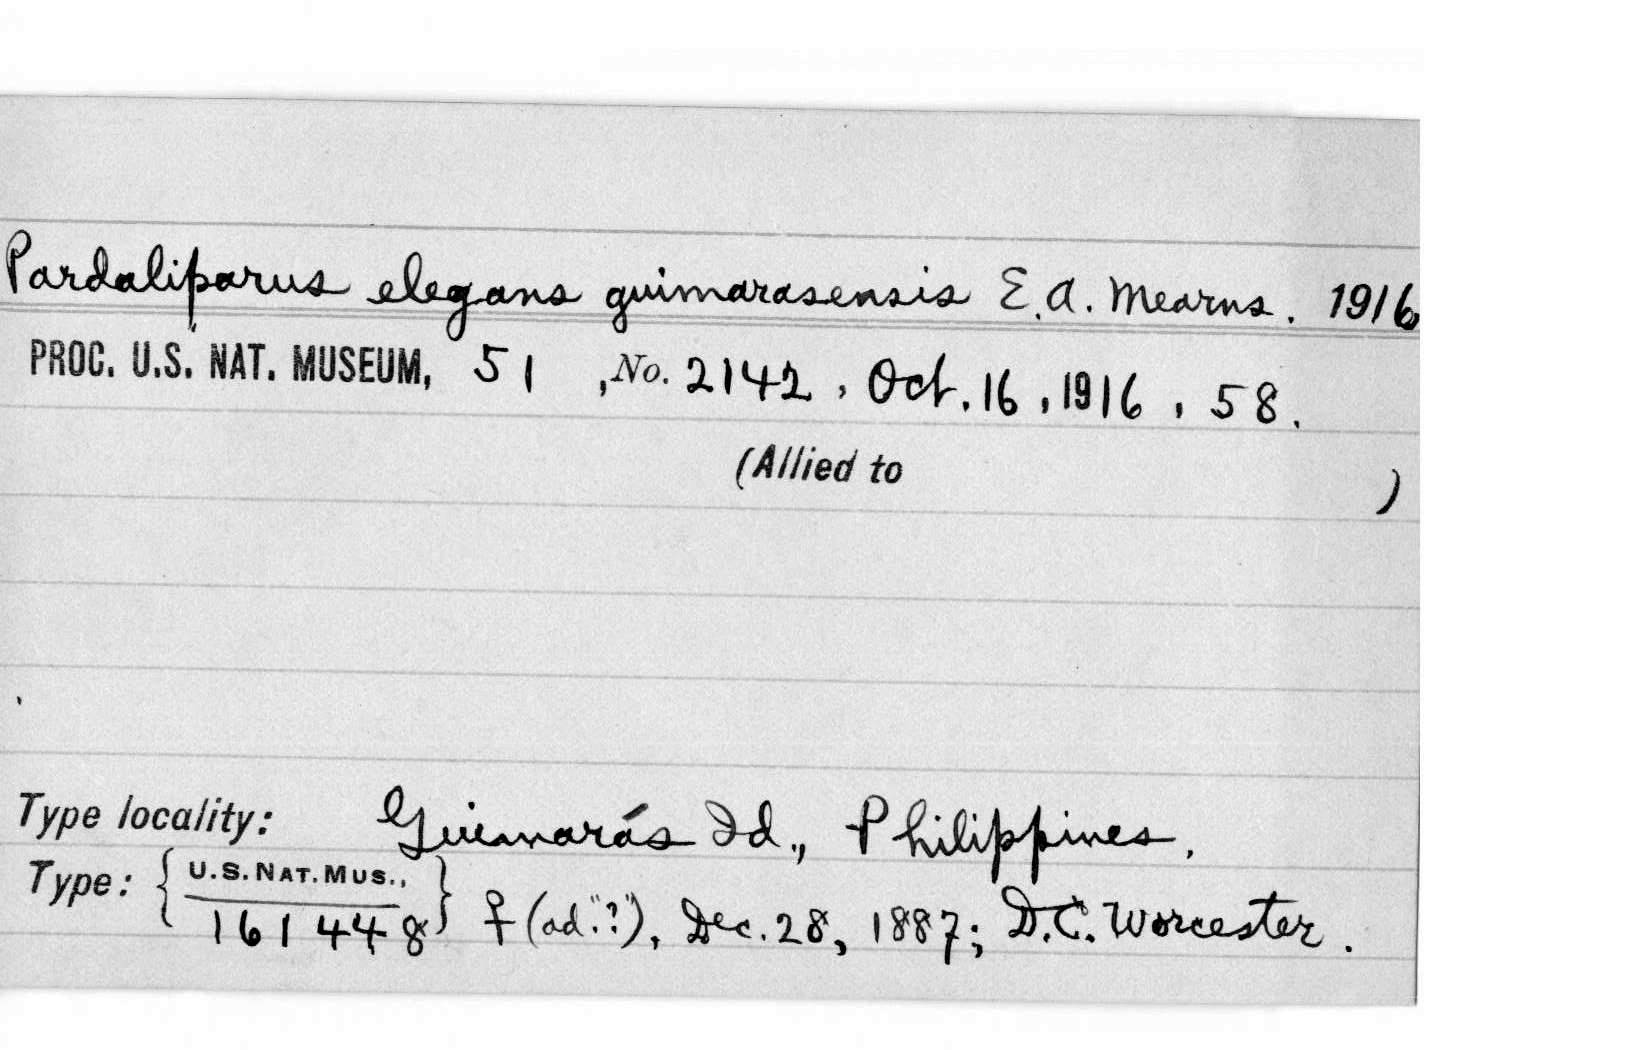 Pardaliparus elegans guimarasensis E.A. Mearns. 1916
PROC. U.S. NAT. MUSEUM, 51 , No. 2142 , Oct. 16 , 1916 , 58.
(Allied to )
Type locality: Guimarás Id., Philippines.
Type: { U.S. NAT. MUS.,
161448 } ♀ (ad."?"), Dec. 28, 1887; D.C. Worcester.